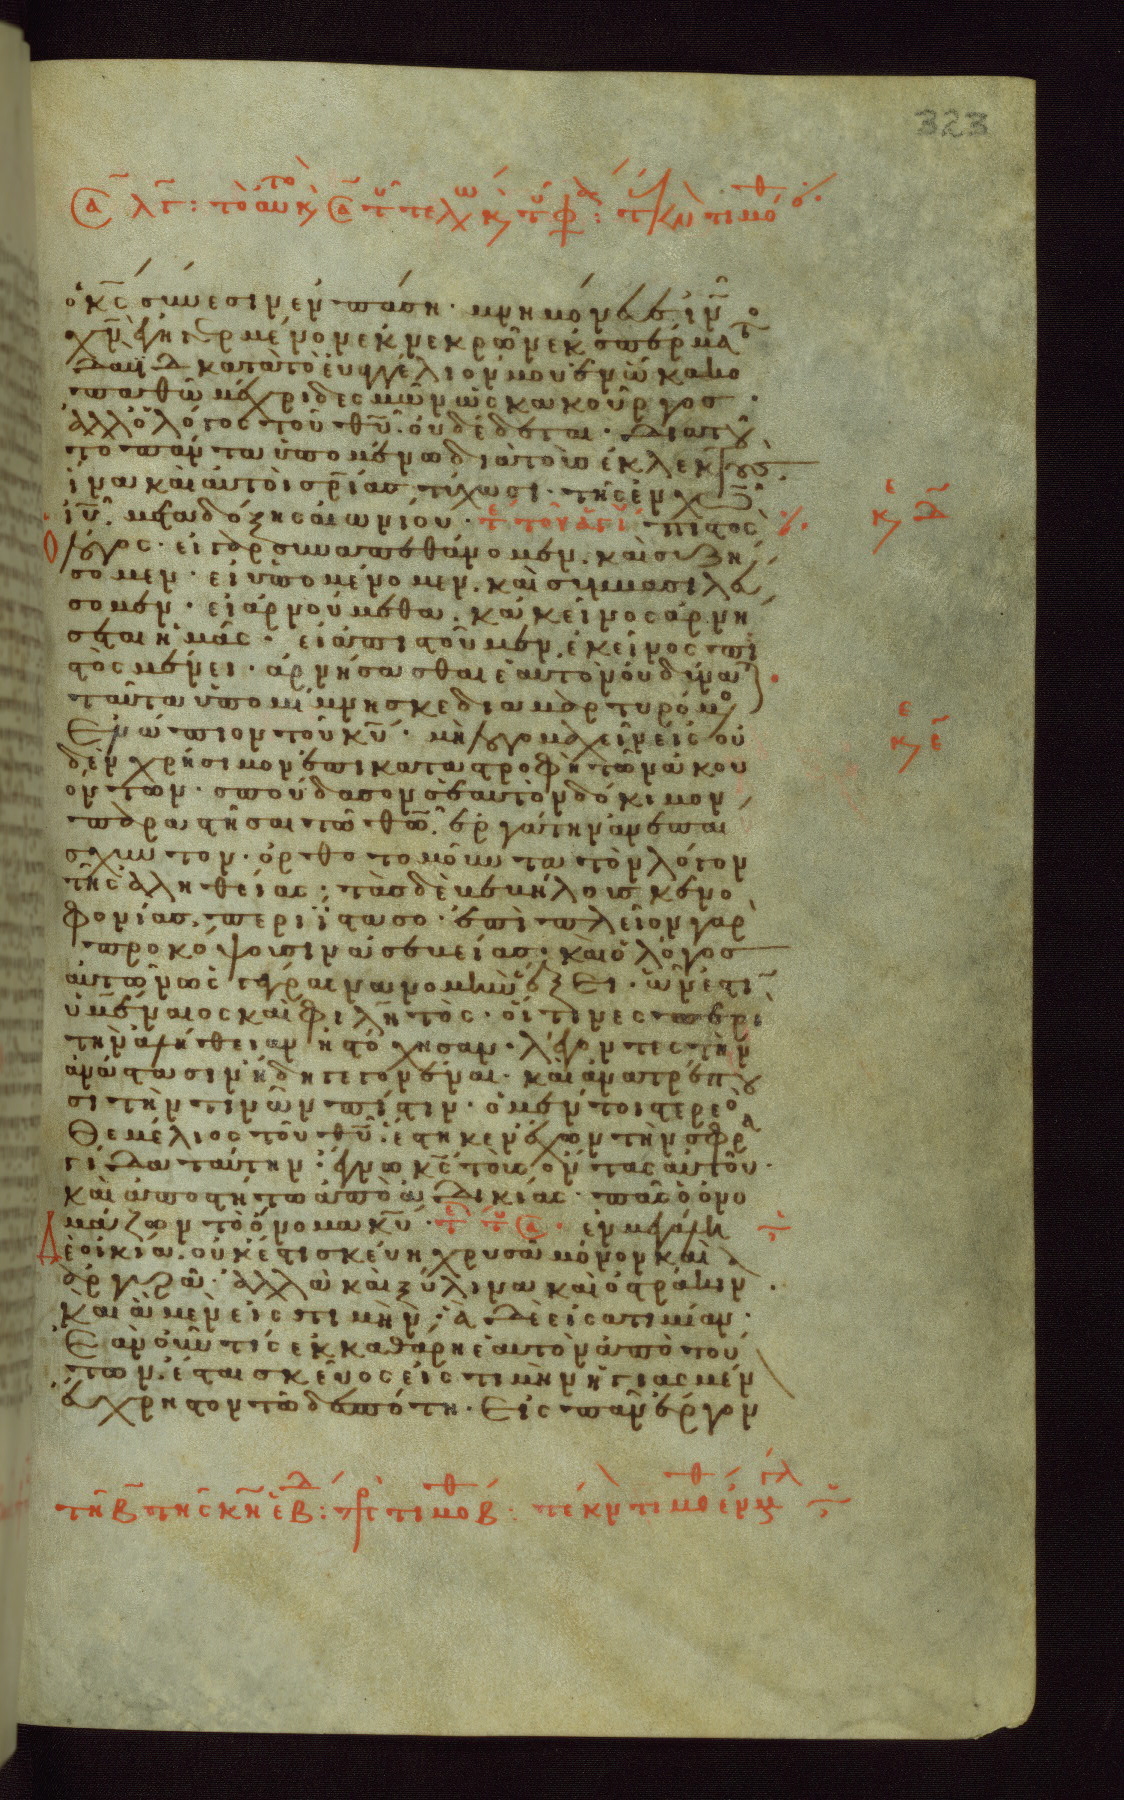 323
ὁ κς σύνεσιν ἐν πᾶσι. μνημόνευε ιν
χν ἐγηγερμένον ἐκ νεκρῶν ἐκ σπέρματος
δαδ κατὰ τὸ εὐαγγέλιόν μου ἐν ὧ κακο
παθῶ μέχρι δεσμῶν ὡς κακοῦργος.
ἀλλ ὁ λόγος τοῦ θυ οὐ δέδεται. διὰ τοῦ
το πάντα ὑπομένω διὰ τοὺς ἐκλεκτους
ἵνα καὶ αὐτοὶ σριας τύχωσι. τῆς ἐν χω
ιυ. μετὰ δόξης αἰωνίου. πιστὸς
κ δ
ὁ λόγος. εἰ γὰρ συναπεθάνομεν. καὶ συζή
σομεν. εἰ ὑπομένομεν. καὶ συμβασιλεύ
σομεν. εἰ ἀρνούμεθα. κἀκεῖνος ἀρνή
σεται ἡμᾶς. εἰ ἀπιστοῦμεν. ἐκεῖνος πι
στὸς μένει. ἀρνήσασθαι ἑαυτὸν οὐ δύναται
ταῦτα ὑπομίμνησκε διαμαρτυρόμενος
ἐνώπιον τοῦ κυ. μὴ λογομαχεῖν εἰς οὐ
κ ε
δὲν χρήσιμον ἐπὶ καταστροφῆ τῶν ἀκου
όντων. σπούδασον σεαυτὸν δόκιμον
παραστῆσαι τῶ θω. ἐργάτην ἀνεπαί
σχυντον. ὀρθοτομοῦντα τὸν λόγον
τῆς ἀληθείας. τὰς δὲ βεβήλους κενο
φωνίας. περιΐστασο. ἐπὶ πλεῖον γὰρ
προκόψουσιν ἀσεβείας. καὶ ὁ λόγος
αὐτῶν ὡς γάγραινα νομὴν ἕξει. ὧν ἐστιν
ὑμέναιος καὶ φιλητὸς. οἵτινες περὶ
τὴν ἀλήθειαν ἠστόχησαν. λέγοντες τὴν
ἀνάστασιν ἤδη γεγονέναι. καὶ ἀνατρέπου
σι τήν τινων πίστιν. ὁ μέντοι στερεὸς
θεμέλιος τοῦ θυ ἕστηκεν ἔχων τὴν σφρα
γίδα ταύτην. ἔγνω κς τοὺς ὄντας αὐτοῦ.
καὶ ἀποστήτω ἀπὸ ἀδικίας. πᾶς ὁ ὀνο
μάζων τὸ ὄνομα κυ. ἐν μεγάλη
δὲ οἰκία. οὐκ ἔστι σκεύη χρυσᾶ μόνον καὶ
ἀργυρᾶ. ἀλλὰ καὶ ξύλινα καὶ ὀστράκινα.
καὶ ἃ μὲν εἰς τιμὴν. ἃ δὲ εἰς ἀτιμίαν.
ἐὰν οὖν τις ἐκκαθάρη ἑαυτὸν ἀπὸ τού
των. ἔσται σκεῦος εἰς τιμὴν ἡγιασμένον
εὔχρηστον τῶ δεσπότη. εἰς πᾶν ἔργον